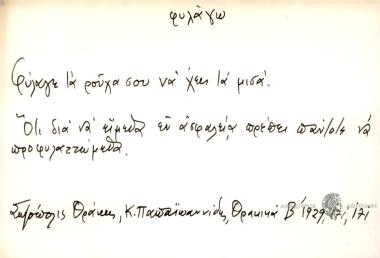 φυλάγω
Φύλαγε τά ροῦχα σου νά 'χεις τά μισά.
Ὅτι διά νά εἴμεθα ἐν ἀσφαλείᾳ, πρέπει πάντοτε νά
προφυλαττώμεθα.
Θράκης, Κ. Παπαϊωαννίδης, Θρακικά Β΄ 1929, 171